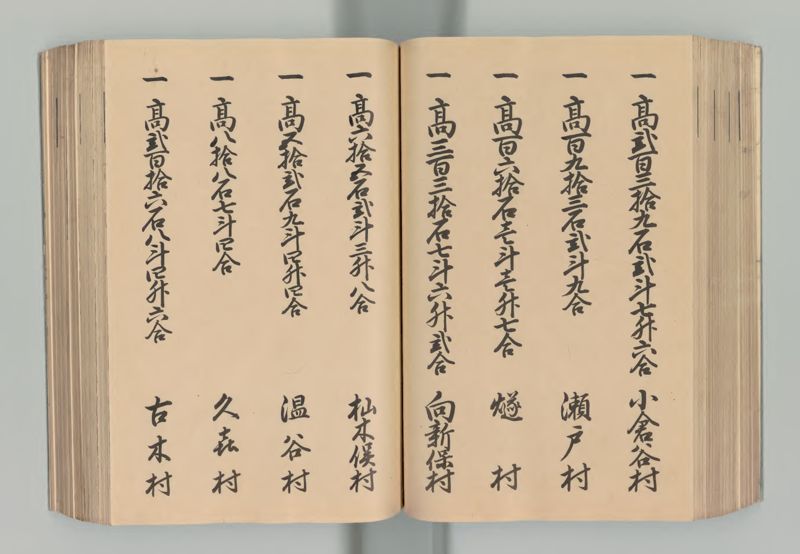 一 高弐百三拾九石弐斗七升六合 小倉谷村
一 高百九拾三石弐斗九合 瀬戸村
一 高百六拾石壱斗壱升七合 燧村
一 高三百三拾石七斗六升弐合 向新保村
一 高六拾五石弐斗三升八合 杣木俣村
一 高五拾弐石九斗四升四合 温谷村
一 高八拾八石七斗四合 久喜村
一 高弐百拾六石八斗四升六合 古木村